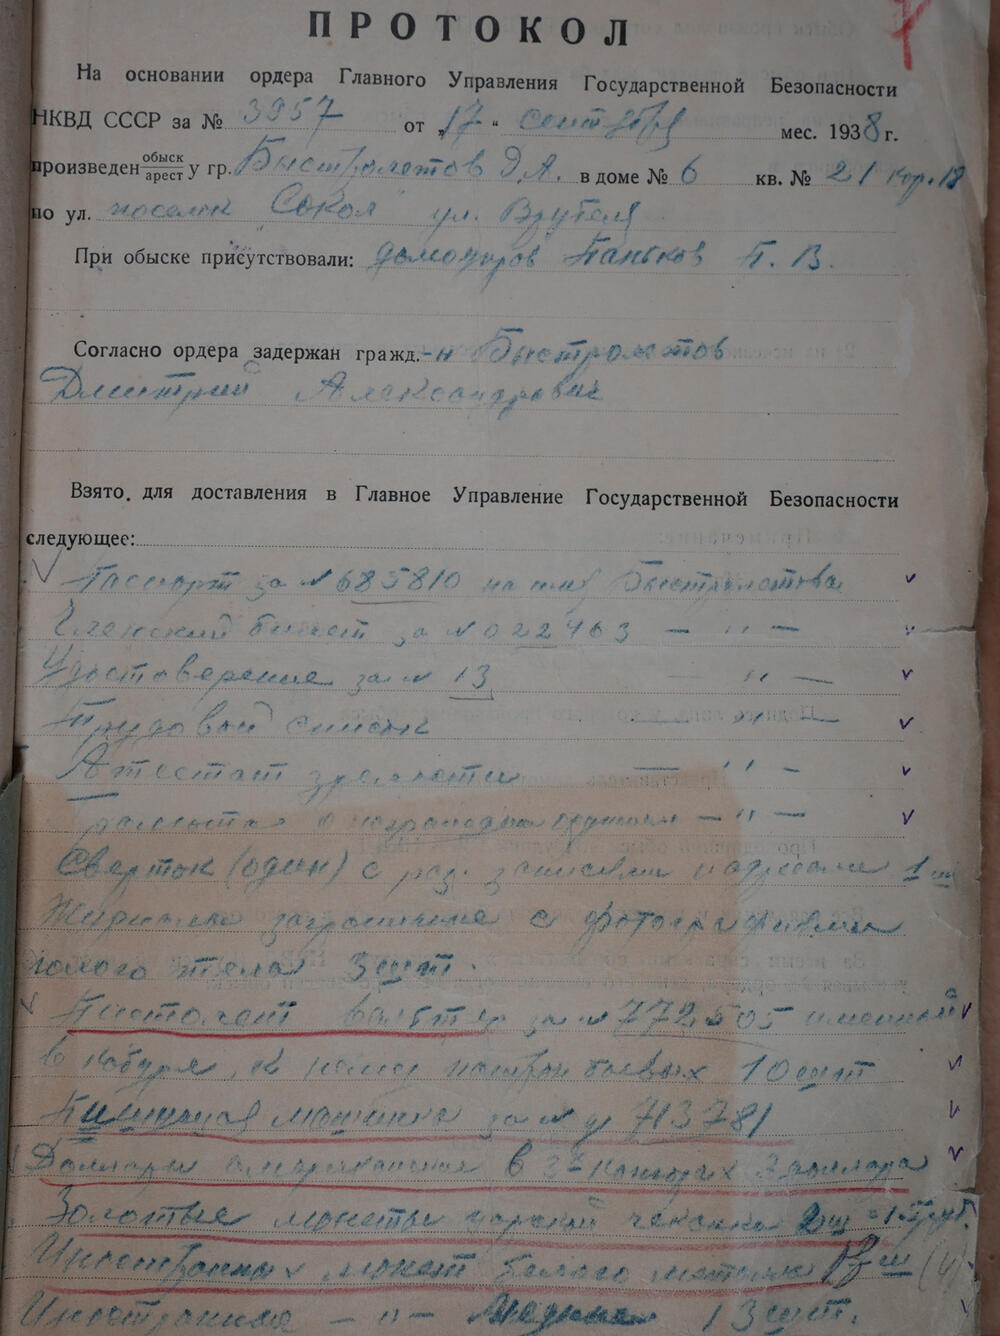 ПРОТОКОЛ
На основании ордера Главного Управления Государственной Безопасности
НКВД СССР за № 3957 от „17“ сентября мес. 1938 г.
произведен обыск арест у гр. Быстролетов Д.А. в доме № 6 кв. № 21 кор. 18
по ул. поселок Сокол ул. Врубеля
При обыске присутствовали: домоупр Паньков П. В.
Согласно ордера задержан гражд.-н Быстролетов
Дмитрий Александрович
Взято для доставления в Главное Управление Государственной Безопасности
следующее:
Паспорт за № 685810 на имя Быстролетова
Членский билет за № 022463 — " —
Удостоверение за № 13 — " —
Трудовой список — " —
Аттестат зрелости — " —
Грамота о награждении оружием — " —
Сверток (один) с раз. записями и адресами 1 шт
Журналы заграничные с фотографиями
голого тела 3 шт.
Пистолет вальтер за № 772505 именной
в кобуре, к нему патрон боевых 10 шт
Пишущая машинка за № 713781
Доллары американские в 3х 3 доллара
Золотые монеты царской чеканки 2 шт
Иностранных монет белого металла
Иностранная — " — медная 13 шт.